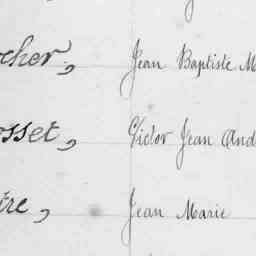 ocher, Jean Baptiste M
osset, Victor Jean And
tre, Jean Marie